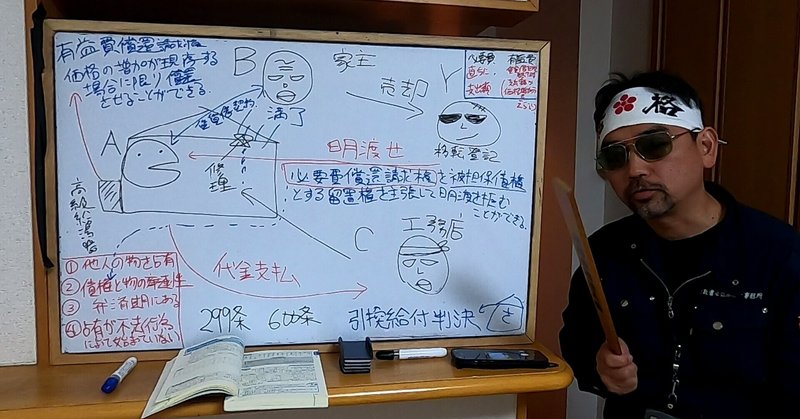 有益費償還請求権
価格の増加が現存する
場合に限り償還
させることができる
B
家主
売却
Y
必要費
有益費
直ちに
支出額
賃貸借契約
満了
移転登記
A
明渡せ
修理
必要費償還請求権を被担保債権
とする留置権を主張して明渡を拒む
ことができる。
高級給湯器
C
工務店
① 他人の物を占有
② 債権と物の牽連性
③ 弁済期にある
④ 占有が不法行為
によって始まっていない
代金支払
299条
608条
引換給付判決
格